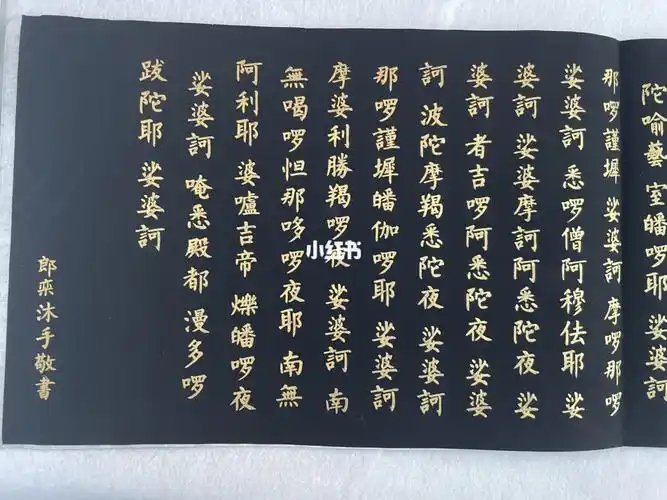 陀喻藝 室皤啰耶 娑婆訶
那啰謹墀 娑婆訶 摩啰那啰
娑婆訶 悉啰僧阿穆佉耶 娑
婆訶 娑婆摩訶阿悉陀夜 娑
婆訶 者吉啰阿悉陀夜 娑婆
訶 波陀摩羯悉陀夜 娑婆訶
那啰謹墀皤伽啰耶 娑婆訶
摩婆利勝羯啰夜 娑婆訶 南
無喝啰怛那哆啰夜耶 南無
阿利耶 婆嚧吉帝 爍皤啰夜
娑婆訶 唵悉殿都 漫多啰
跋陀耶 娑婆訶
郎奕沐手敬書
小红书